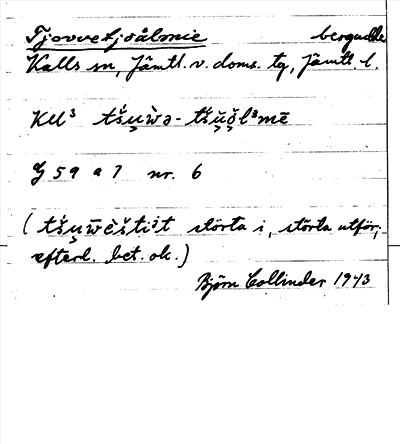 Tjovvetjåålmie bergudde
Kalls sn, Jämtl. v. doms. tg, Jämtl. l.
KU³ tšu̯ẁə-tšŭŏ̭lᵊmē
G 59 a 7 nr. 6
(tšu̯w̄èštiᵊt störta i, störta utför;
efterl. bet. ok.)
Björn Collinder 1943